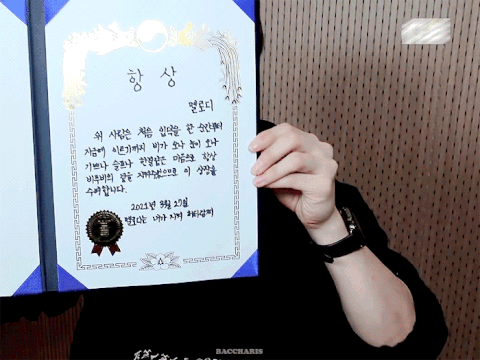 항상
멜로디
위 사람은 처음 입덕을 한 순간부터
지금에 이르기까지 비가 오나 눈이 오나
기쁘나 슬프나 한결같은 마음으로 항상
비투비의 곁을 지켜주었으므로 이 상장을
수여합니다.
2021년 3월 27일
멜로디는 내가 지켜
BACCHARIS